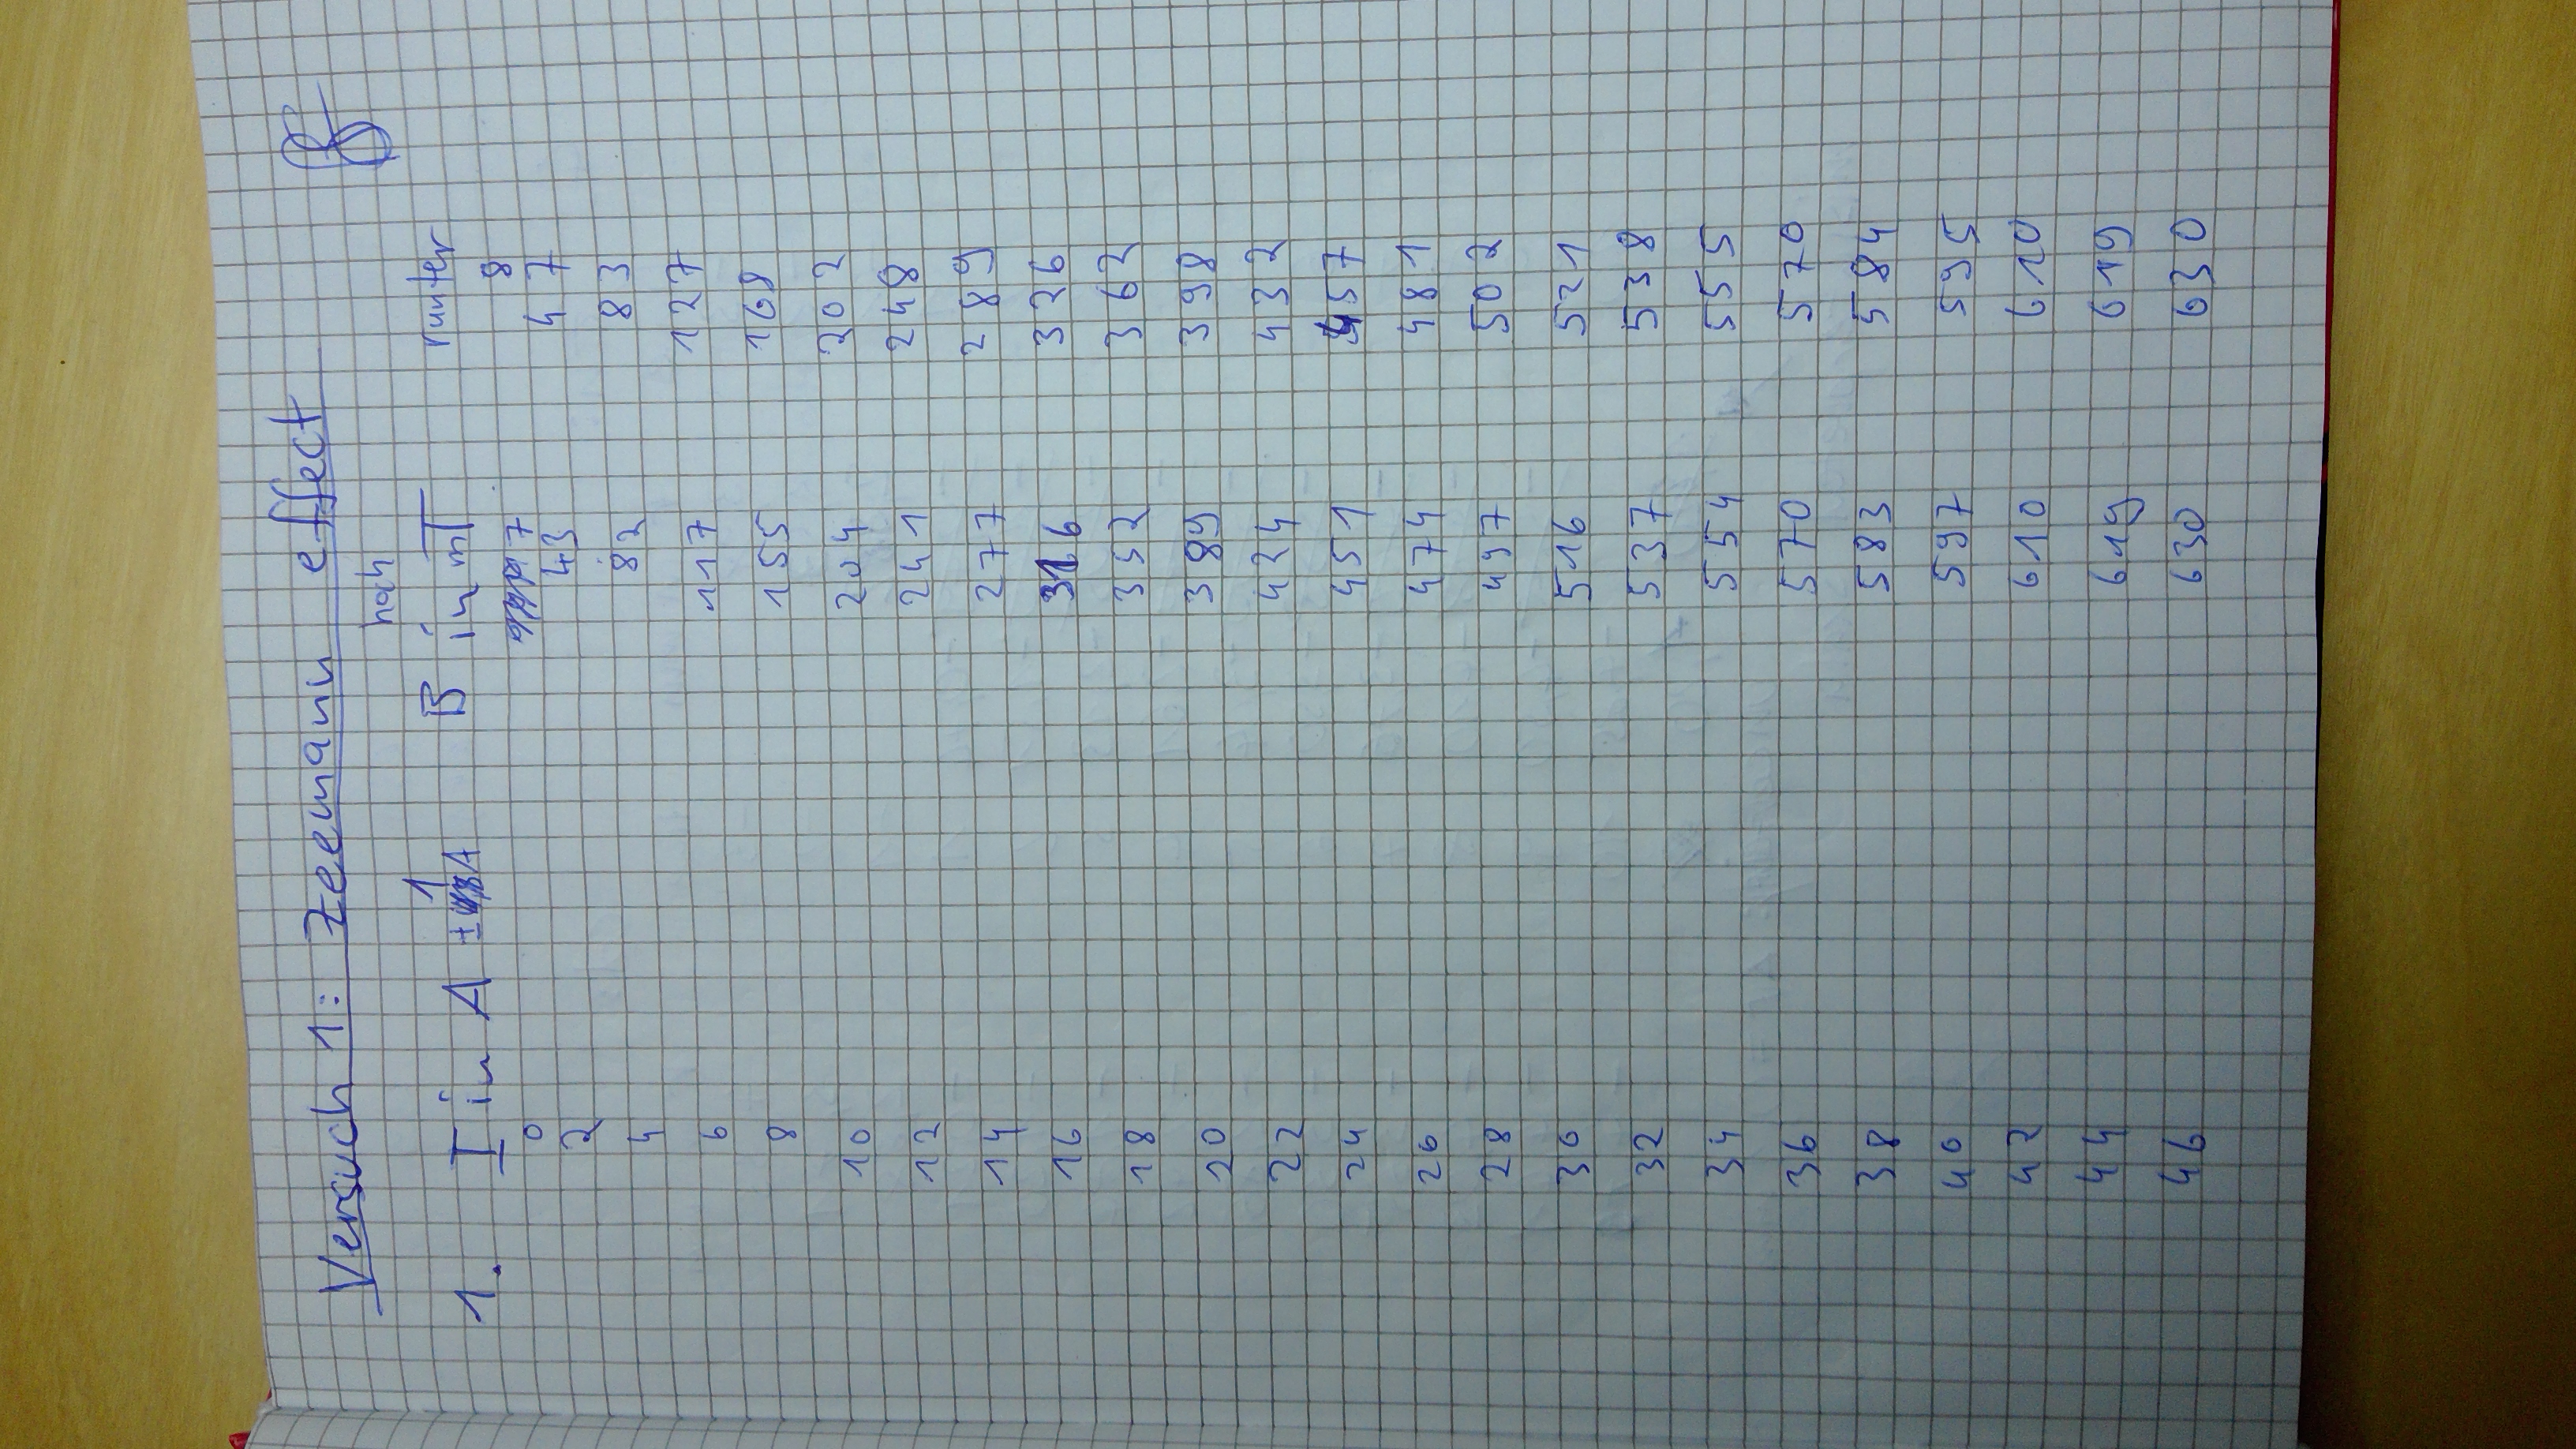 Versuch 1: Zeemann effect
hoch
1. I in A ± 1 A B in mT runter
0 7 8
2 43 47
4 82 83
6 117 127
8 155 168
10 204 202
12 241 248
14 277 289
16 316 326
18 352 362
20 389 398
22 424 432
24 451 457
26 474 481
28 497 502
30 516 521
32 537 538
34 554 555
36 570 570
38 583 584
40 597 595
42 610 610
44 619 619
46 630 630